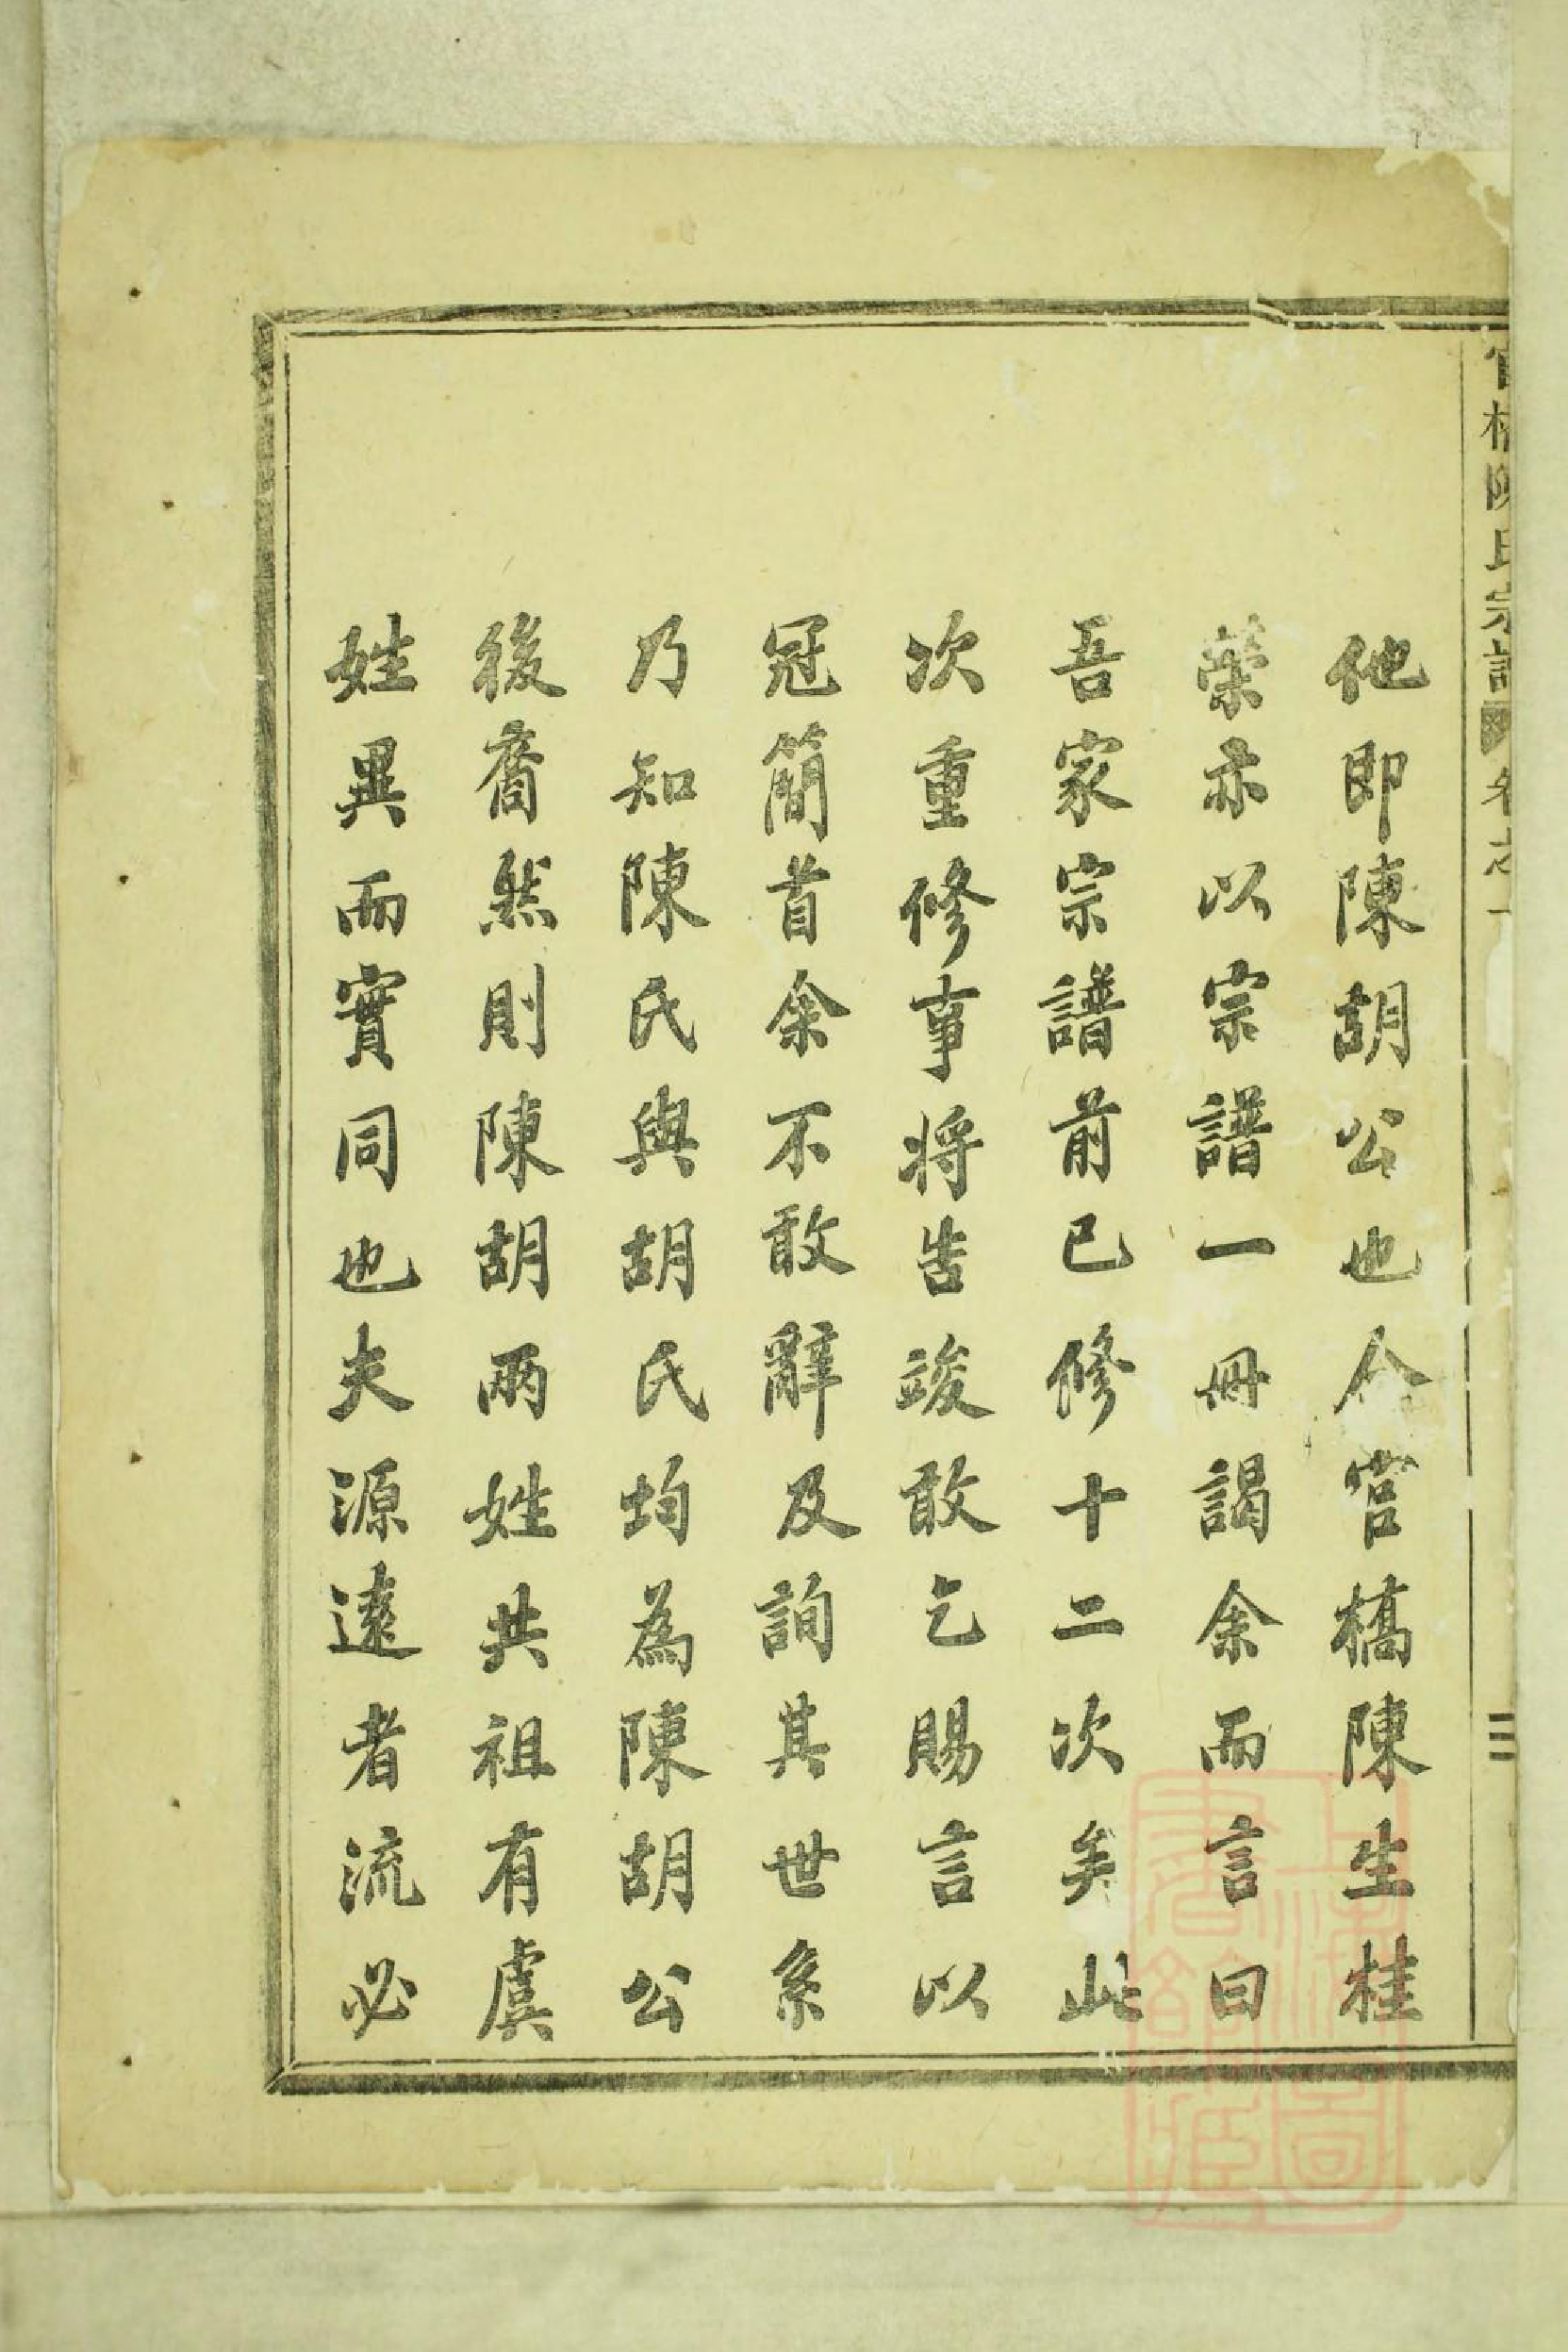 官橋陳氏宗譜 卷之一 三
他即陳胡公也今官橋陳生桂
榮亦以宗譜一冊謁余而言曰
吾家宗譜前已修十二次矣此
次重修事將告竣敢乞賜言以
冠簡首余不敢辭及詢其世系
乃知陳氏與胡氏均為陳胡公
後裔然則陳胡兩姓共祖有虞
姓異而實同也夫源遠者流必
上海圖書館藏